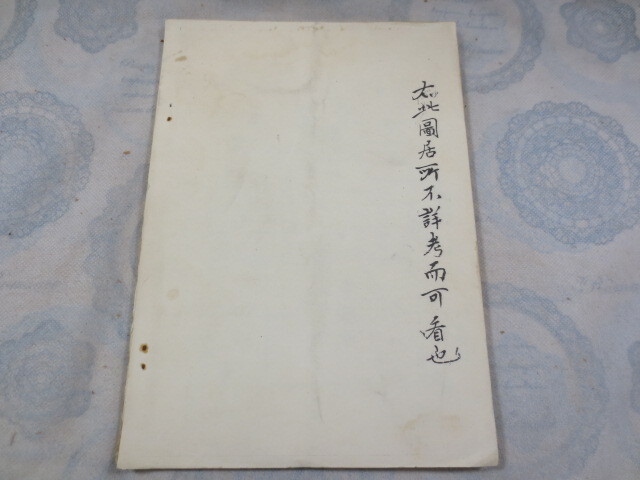 右此圖居所不詳考而可看也